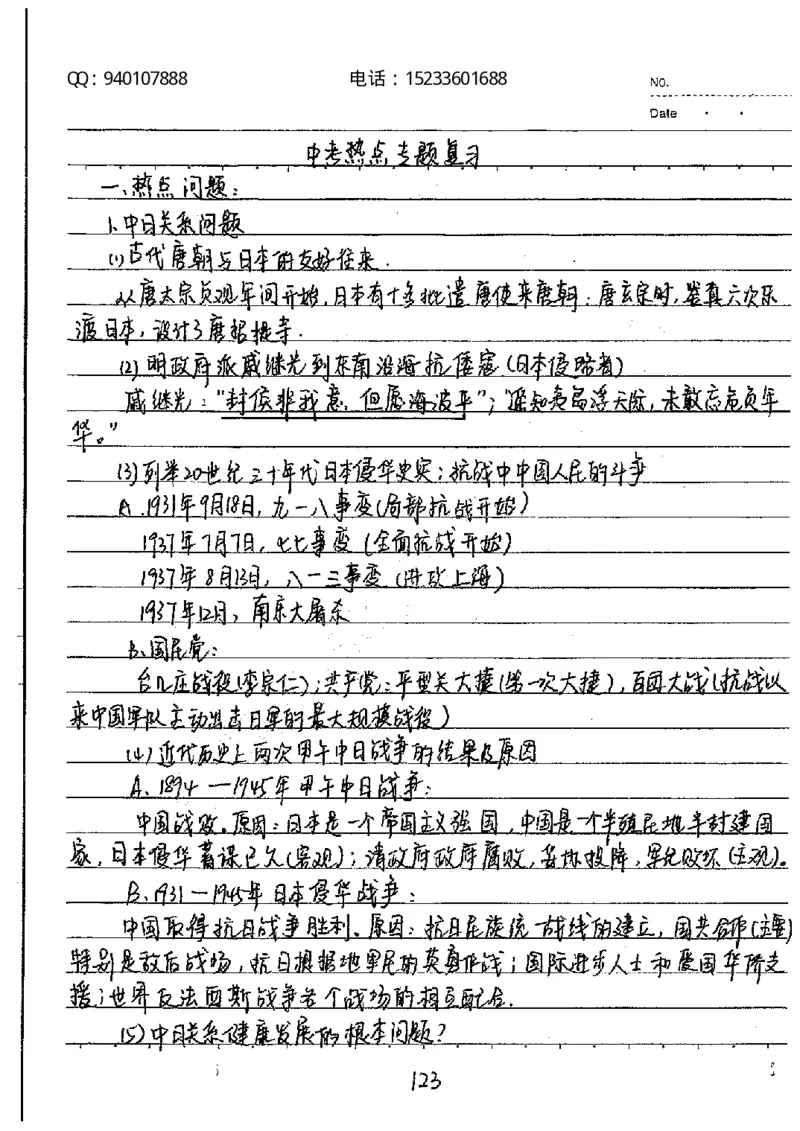 QQ：940107888 电话：15233601688 No.
Date
中考热点专题复习
一、热点问题：
1、中日关系问题
(1)古代唐朝与日本的友好往来.
从唐太宗贞观年间开始,日本有十多批遣唐使来唐朝.唐玄宗时,鉴真六次东
渡日本,设计了唐招提寺.
(2)明政府派戚继光到东南沿海抗倭寇(日本侵略者)
戚继光:"封侯非我意,但愿海波平";"遥知夷岛浮天际,未敢忘危负年
华。"
(3)列举20世纪三十年代日本侵华史实;抗战中中国人民的斗争
A.1931年9月18日,九一八事变(局部抗战开始)
1937年7月7日,七七事变(全面抗战开始)
1937年8月13日,八一三事变(进攻上海)
1937年12月,南京大屠杀
B、国民党:
台儿庄战役(李宗仁);共产党:平型关大捷(第一次大捷),百团大战(抗战以
来中国军队主动出击日军的最大规模战役)
(4)近代历史上两次甲午中日战争的结果及原因
A、1894—1945年甲午中日战争:
中国战败。原因:日本是一个帝国主义强国,中国是一个半殖民地半封建国
家,日本侵华蓄谋已久(客观);清政府政府腐败,妥协投降,军纪败坏(主观)。
B、1931—1945年日本侵华战争:
中国取得抗日战争胜利、原因:抗日民族统一战线的建立,国共合作(主要)
特别是敌后战场,抗日根据地军民的英勇作战;国际进步人士和爱国华侨支
援;世界反法西斯战争各个战场的相互配合.
(5)中日关系健康发展的根本问题?
123